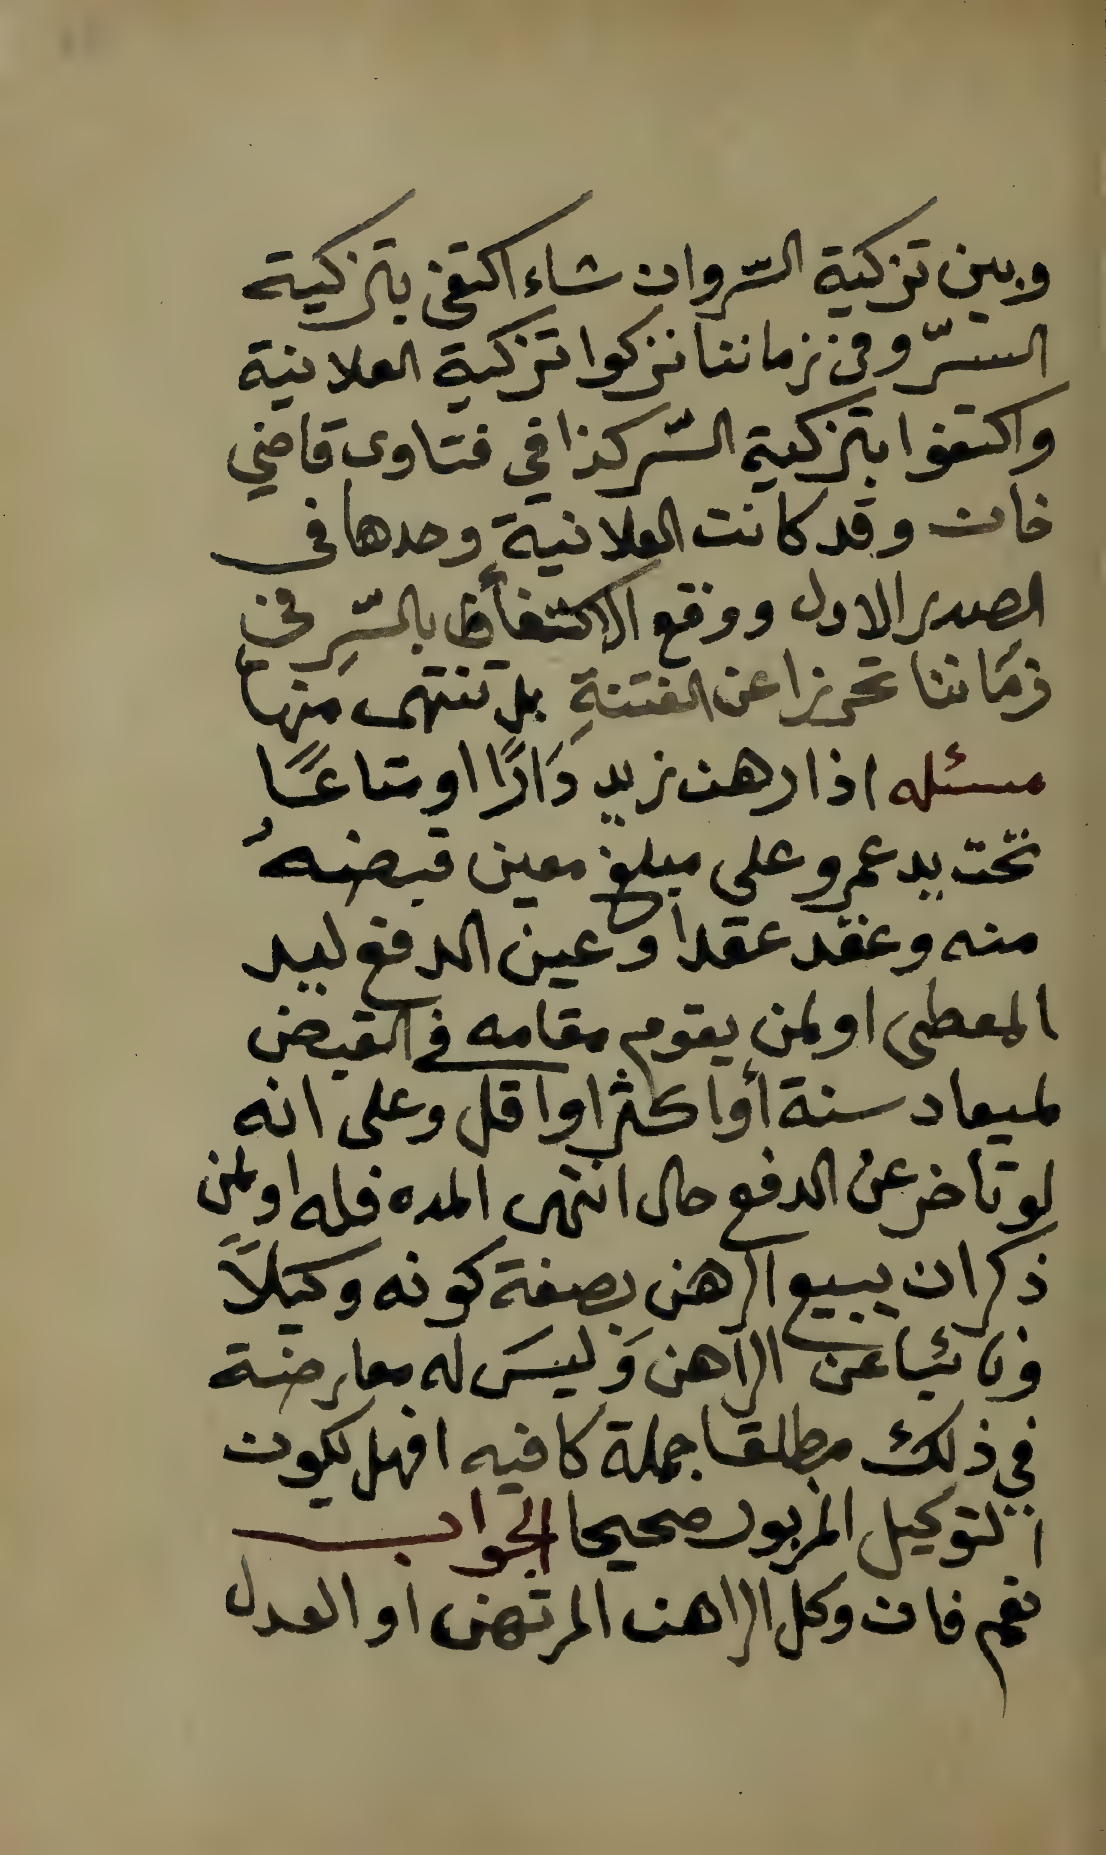 وبين تزكية السّر وان شاء اكتفى بتزكية
السّرّ وفى زماننا تركوا تزكية العلانية
واكتفوا بتزكية السّر كذا في فتاوى قاضي
خان وقد كانت العلانية وحدها فى
الصدر الاول ووقع الاكتفأ بالسّرِ في
زمَاننا تحرزا عن الفتنةِ بل تنتهى منها
مسئله اذا رهن زيد دَارًا او متاعًا
تحت يد عمرو على مبلغ معين قبضهُ
منه وعقد عقدا وعين الدفع ليد
المعطى او لمن يقوم مقامه في القبض
لميعاد سنة أو اكثر او اقل وعلى انه
لو تاخر عن الدفع حال انتهى المده فله او لمن
ذكر ان يبيع الرهن بصفة كونه وكيلاً
ونائبا عن الراهن وَليسَ له معارضة
في ذلك مطلقا جملة كافيه افهل يكون
التوكيل المزبور صحيحا الجواب
نعم فان وكل الراهن المرتهن او العدل